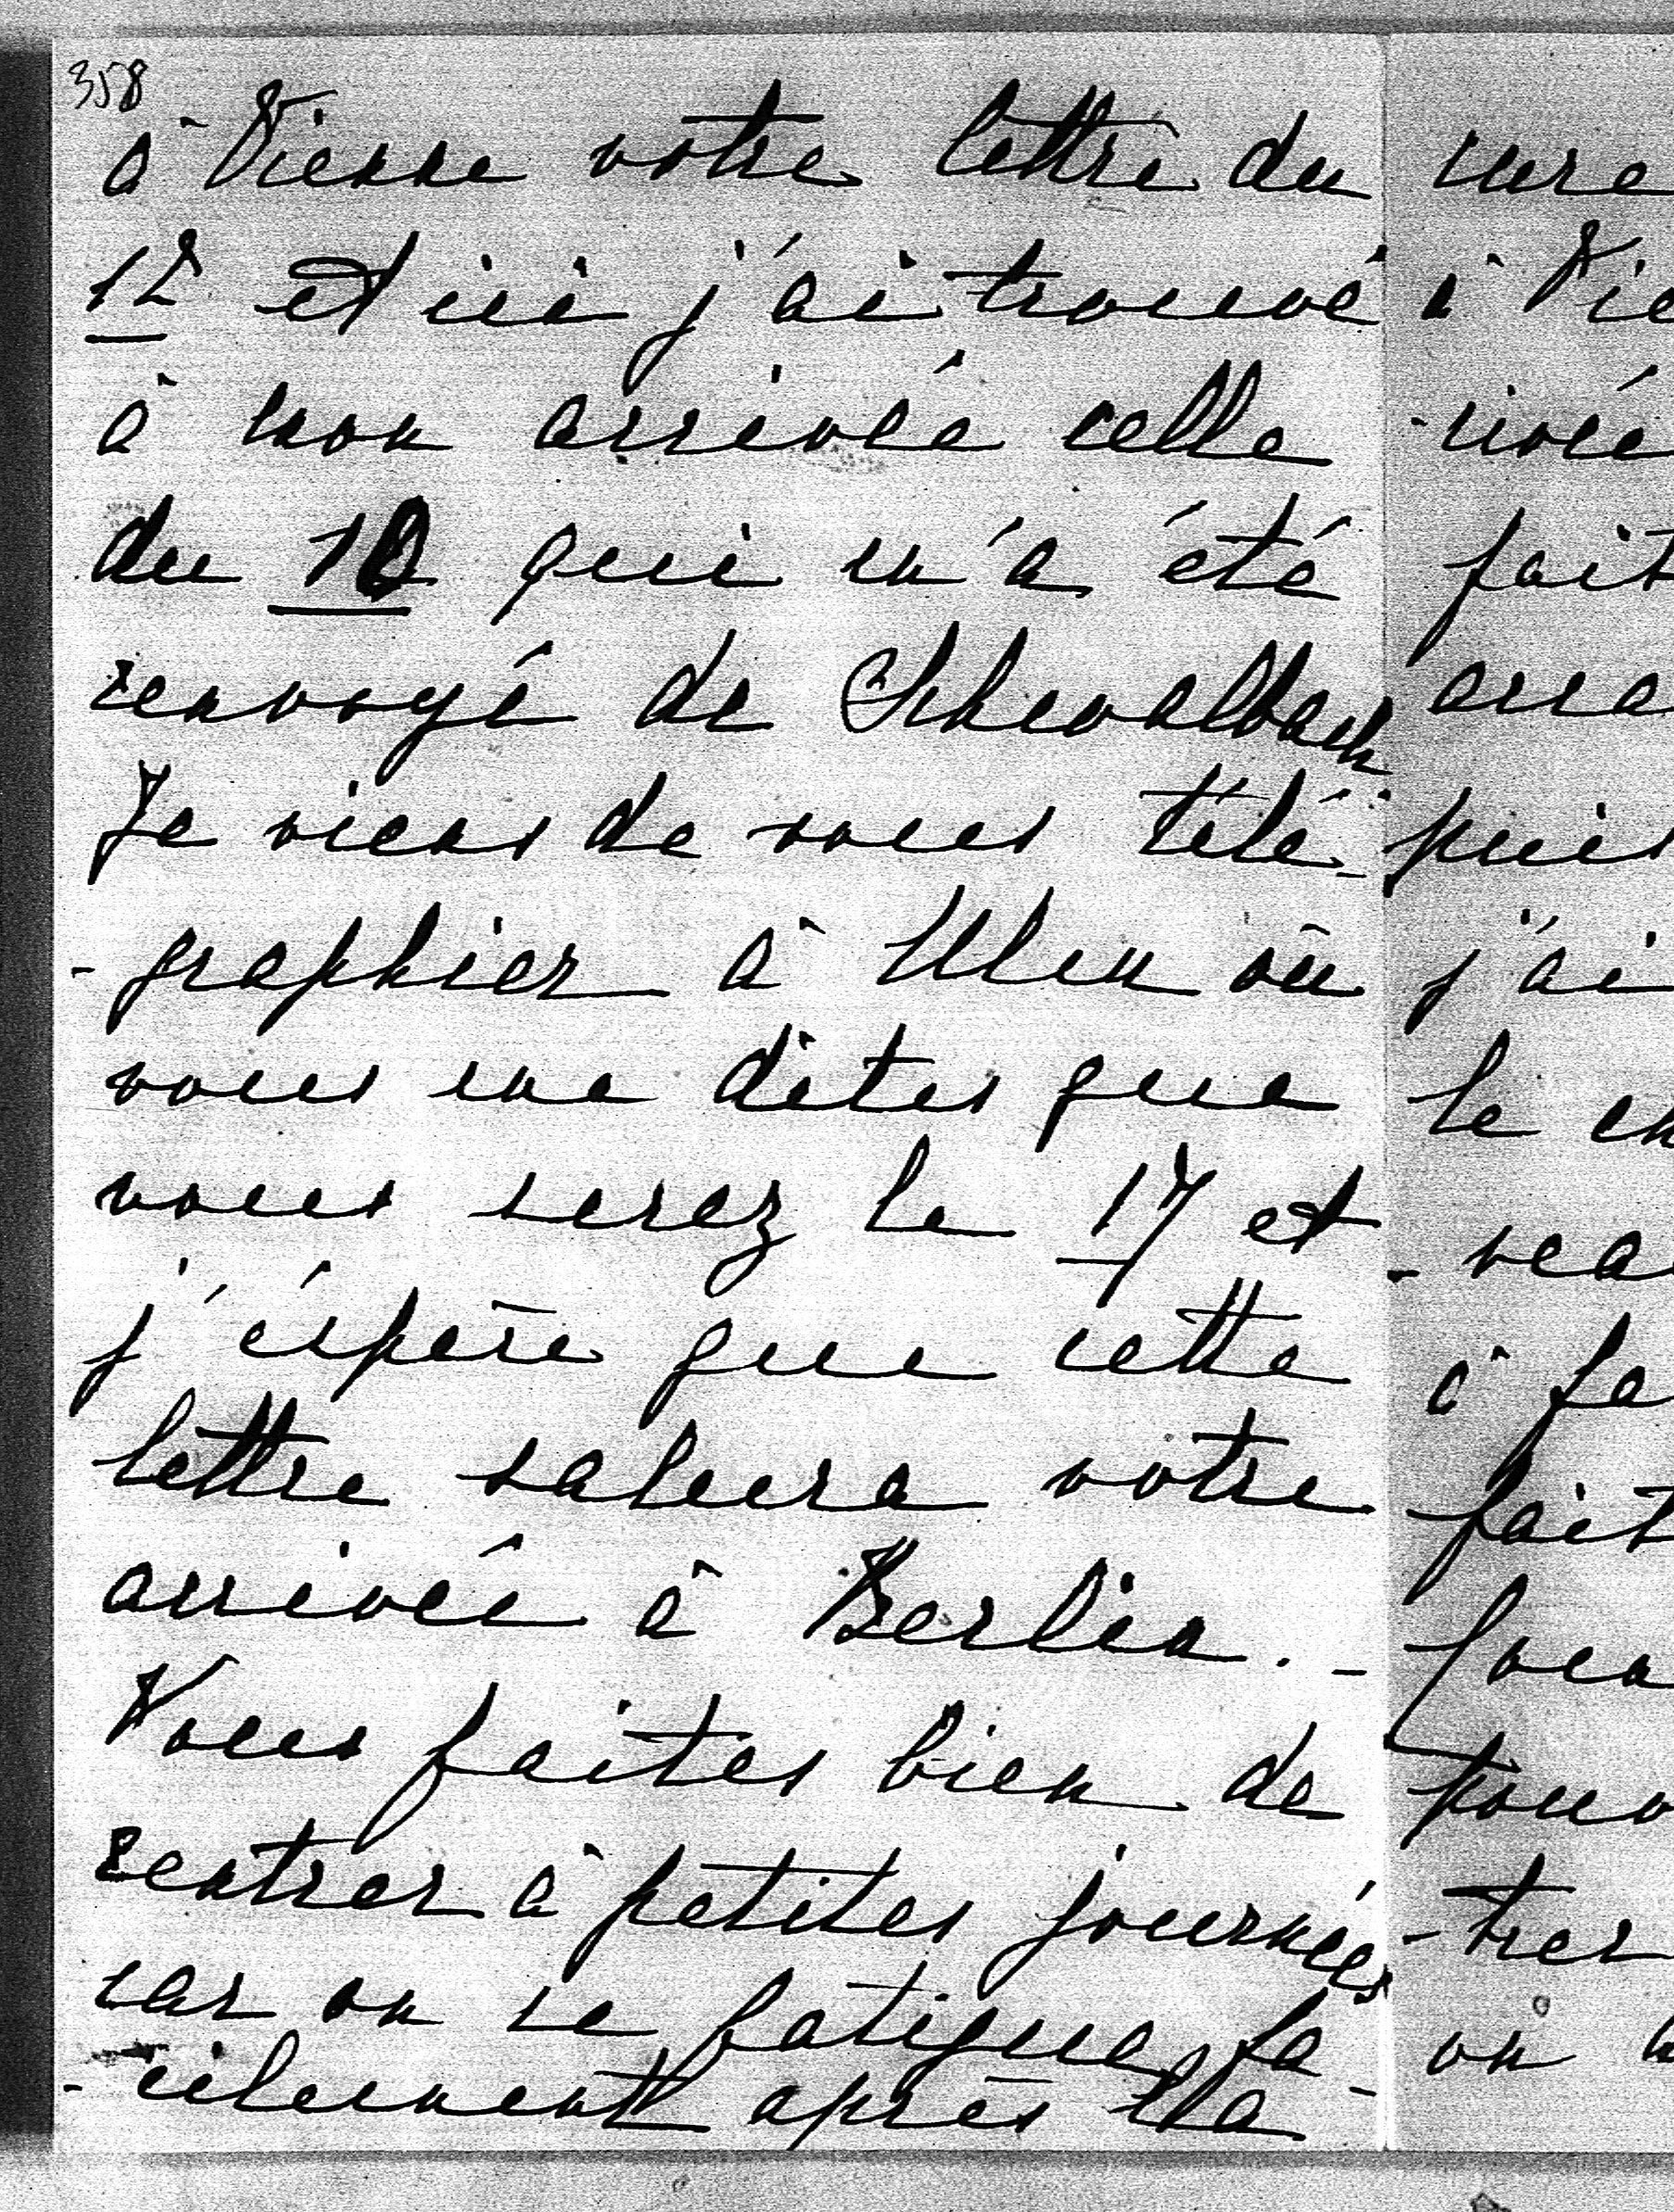 358
à Vienne votre lettre du
12 et ici j'ai trouvé
à mon arrivée celle
du 10 qui m'a été
renvoyé de Schwalbach
Je viens de vous télé-
-graphier à Ulm où
vous me dites que
vous serez le 17 et
j'éspère que cette
lettre saluera votre
arrivée à Berlin. -
Vous faites bien de
rentrer à petites journées
car on se fatigue fa-
-cilement après la
à Vie
fait
puis
j'ai
le
à
fait
-trer
on